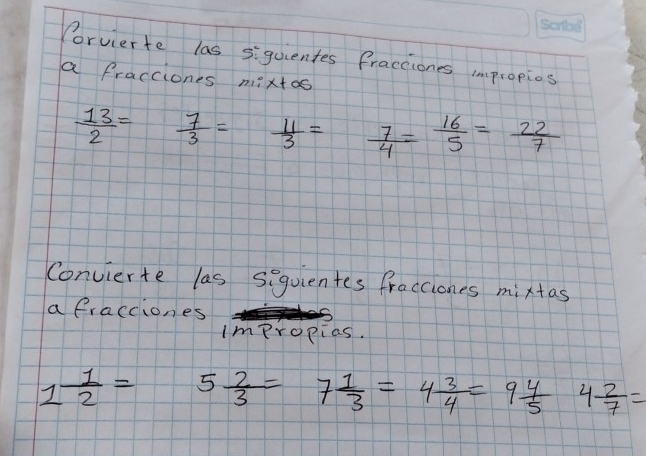 Scribe
Convierte las siguientes fracciones impropias
a fracciones mixtas
13/2 = 7/3 = 11/3 = 7/4 = 16/5 = 22/7
Convierte las siguientes fracciones mixtas
a fracciones
impropias.
1 1/2 = 5 2/3 = 7 1/3 = 4 3/4 = 9 4/5 4 2/7 =